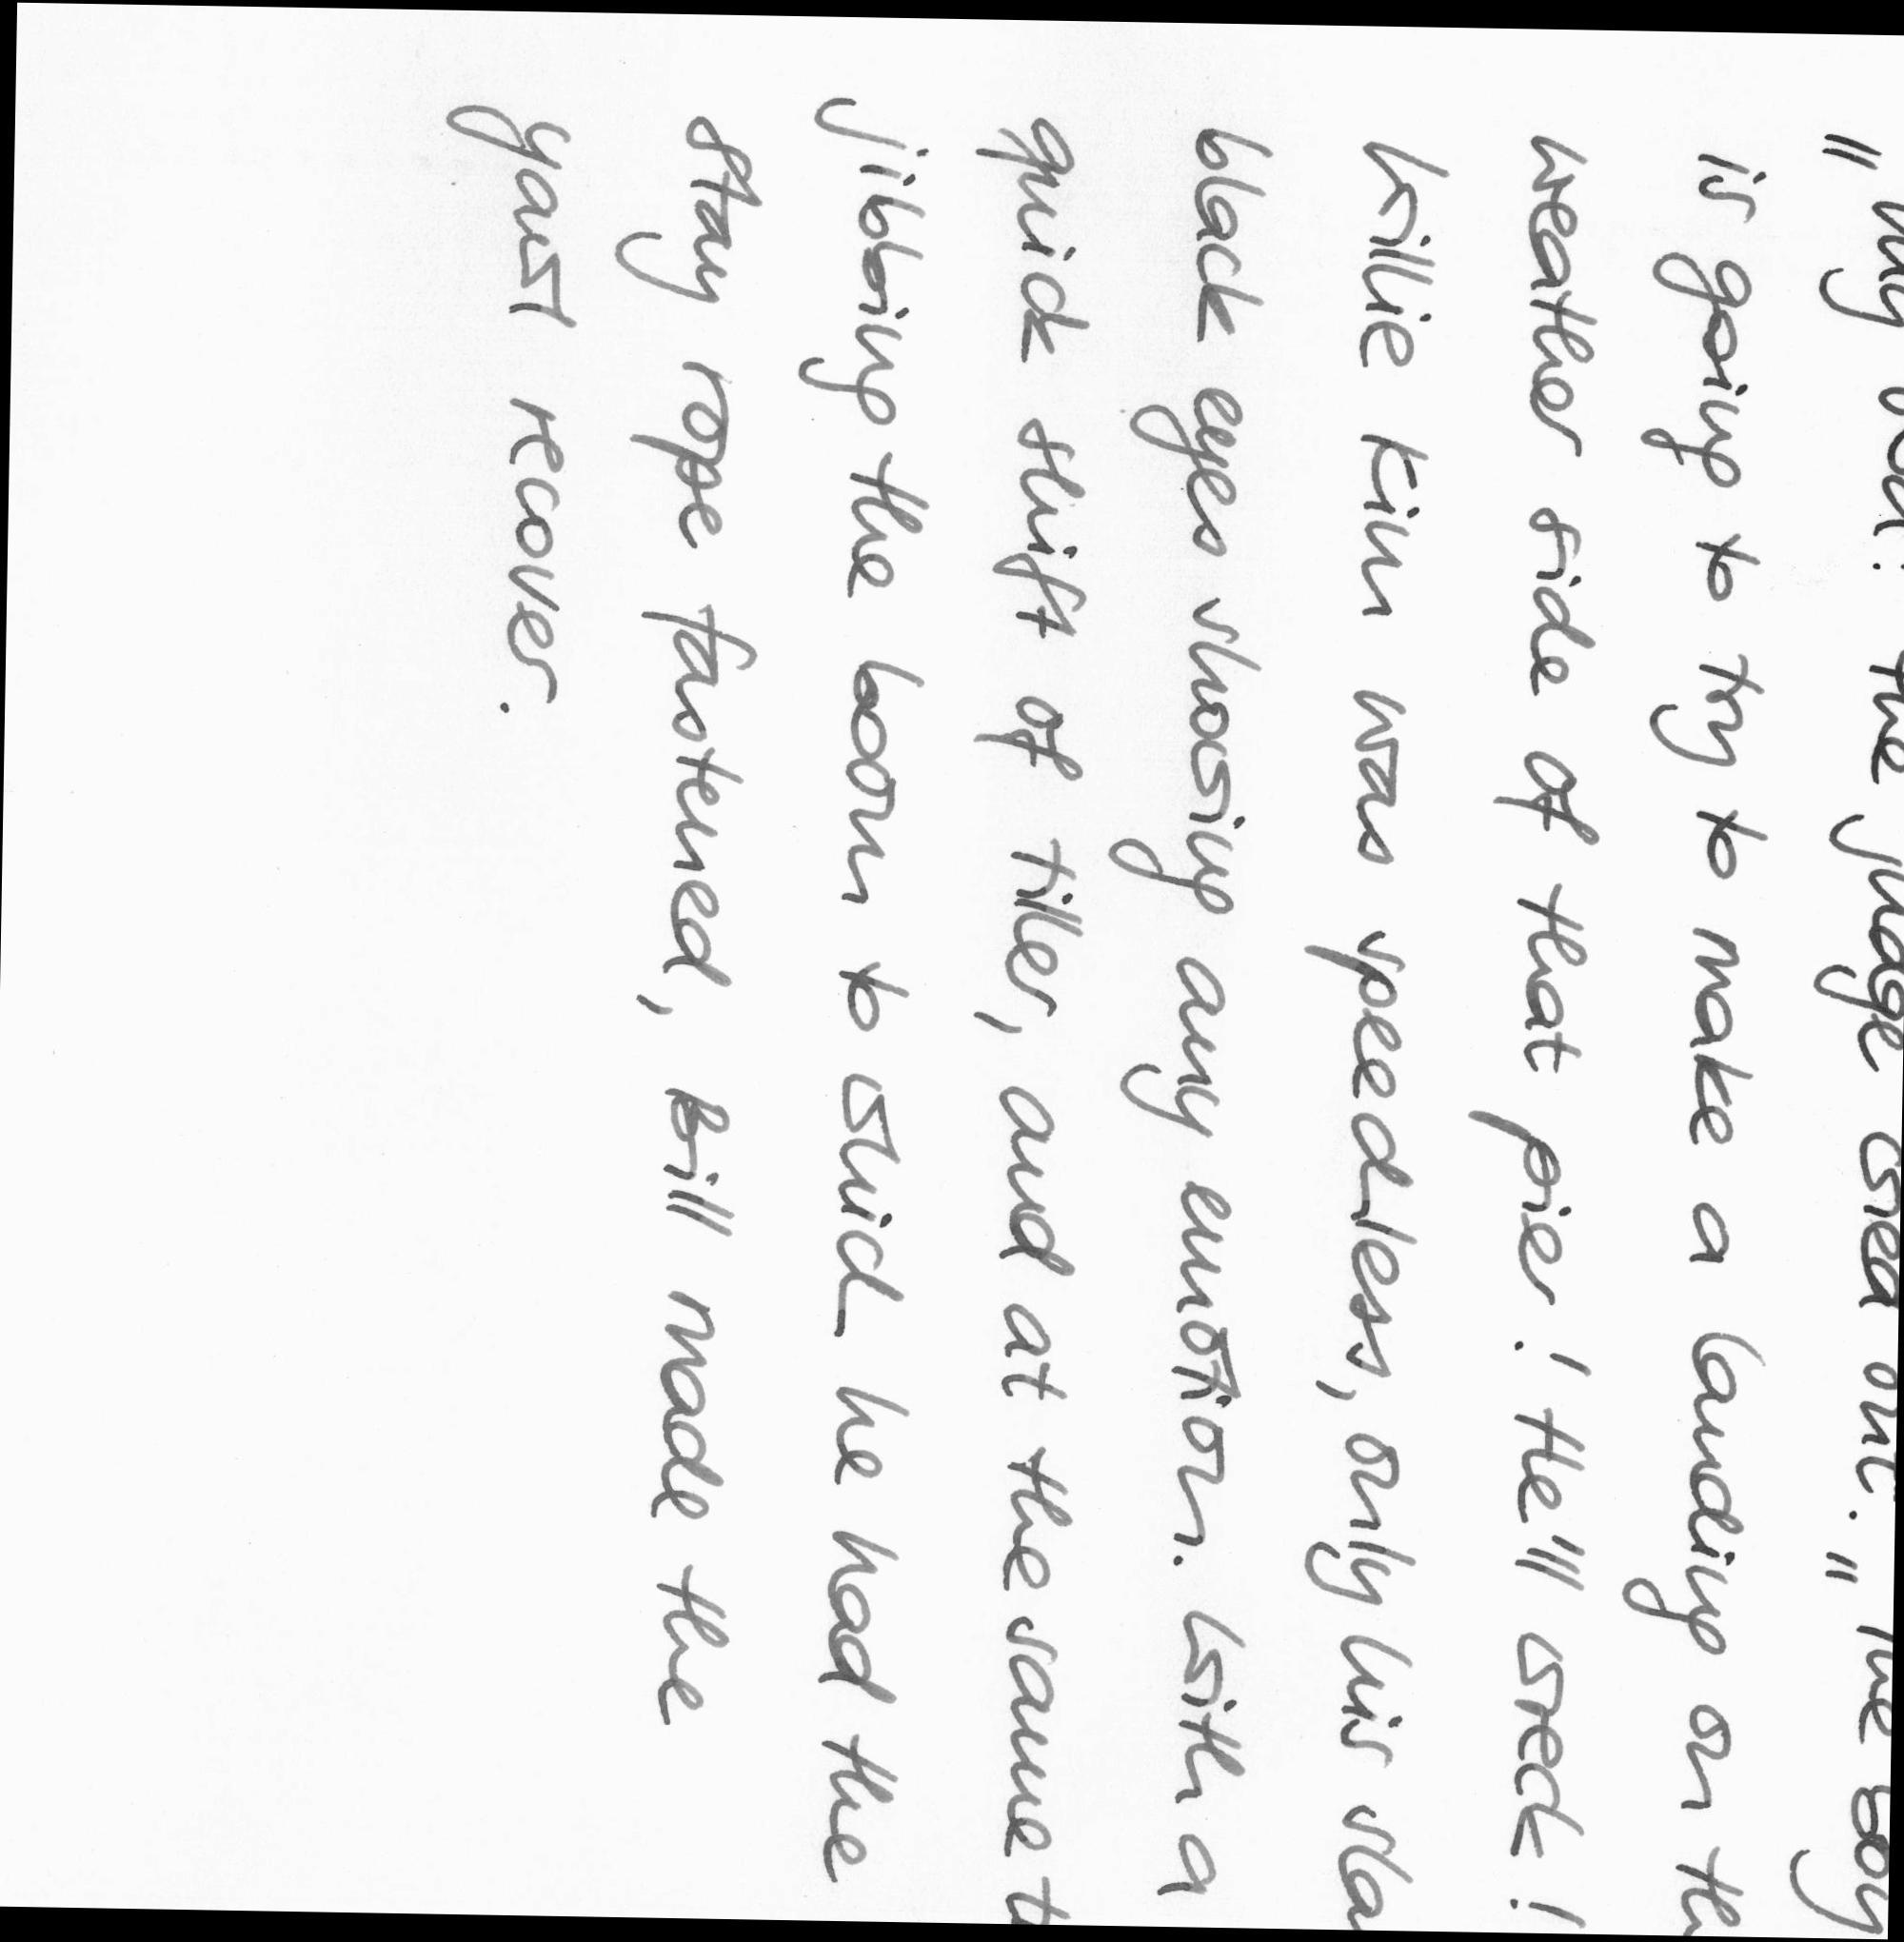 "My God!" the judge cried out. "The boy
is going to try to make a landing on th
weather side of that pier! He'll wreck!
Willie Kim was speechless, only his sla
black eyes showing any emotion. With a
quick shift of tiller, and at the same t
jibbing the boom to which he had the
stay rope fastened, Bill made the
yawl recover.